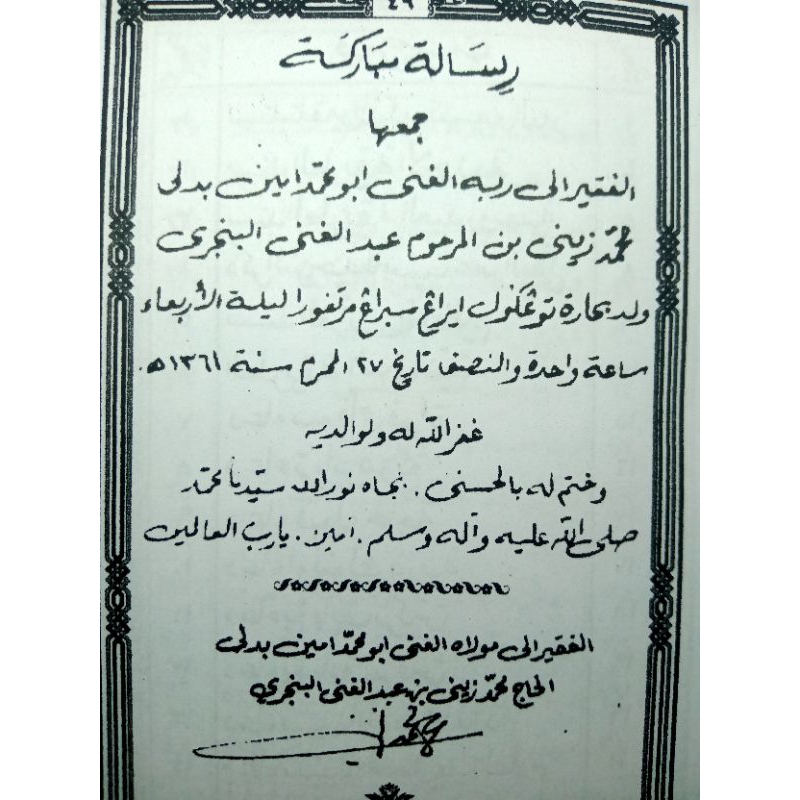 ٤٩
رسالة مباركة
جمعها
الفقير الى ربه الغنى ابو محمد امين بدلى
محمد زينى بن المرحوم عبد الغنى البنجرى
ولد بحارة توڠكول ايراڠ سبراڠ مرتفورا ليلة الأربعاء
ساعة واحدة والنصف تاريخ ٢٧ المحرم سنة ١٣٦١ه.
غفر الله له ولوالديه
وختم له بالحسنى. بجاه نور الله سيدنا محمد
صلى الله عليه وآله وسلم. امين. يارب العالمين
الفقير الى مولاه الغنى ابو محمد امين بدلى
الحاج محمد زينى بن عبد الغنى البنجري